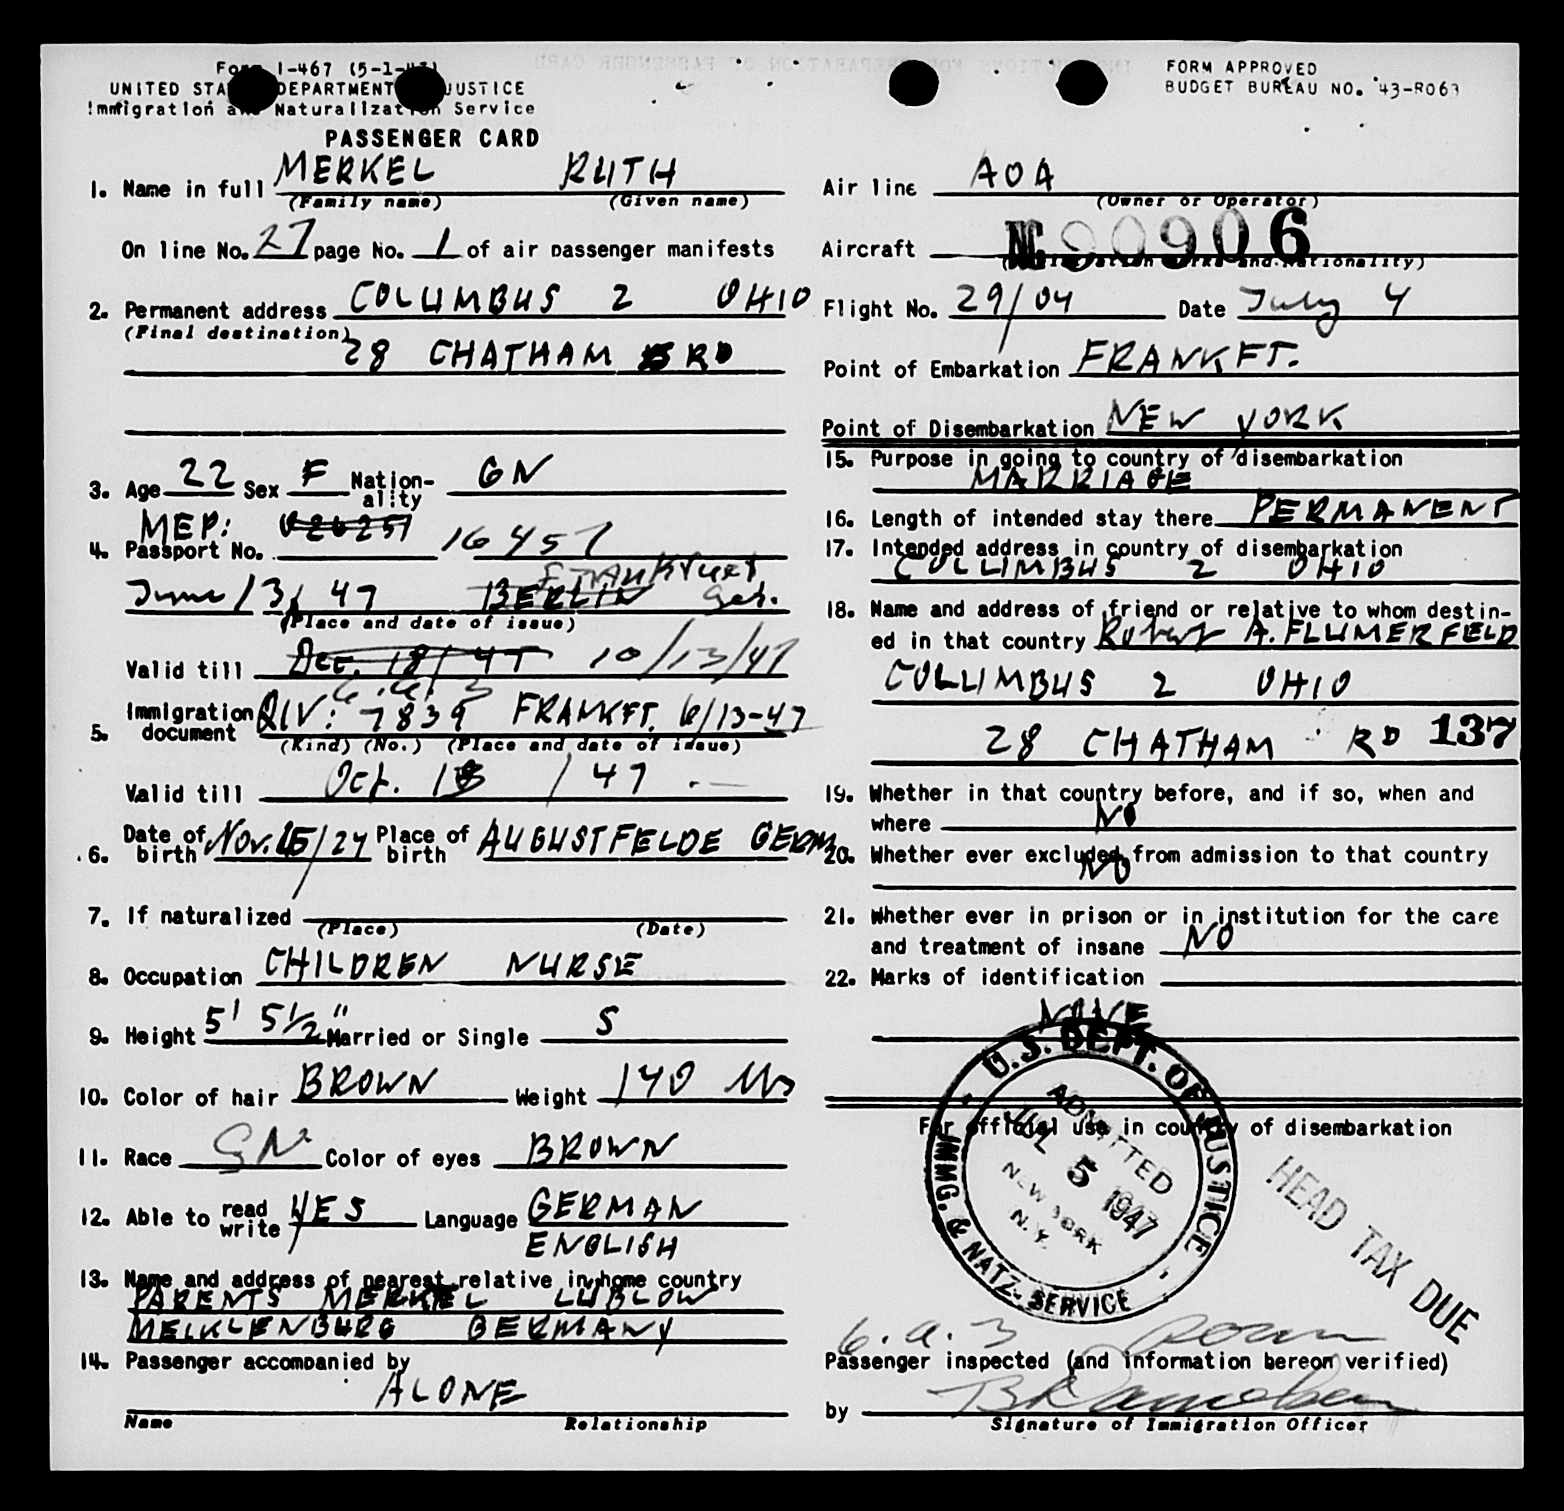 Form I-467 (5-1-43)
UNITED STATES DEPARTMENT OF JUSTICE
Immigration and Naturalization Service
PASSENGER CARD
FORM APPROVED
BUDGET BUREAU NO. 43-R063
1. Name in full MERKEL RUTH
(Family name) (Given name)
On line No. 27 page No. 1 of air passenger manifests
2. Permanent address COLUMBUS 2 OHIO
(Final destination)
28 CHATHAM RD
3. Age 22 Sex F Nation-ality GN
MEP: 026257
4. Passport No. 16457
Frankfurt
June 13/47 BERLIN Ger.
(Place and date of issue)
Valid till Dec. 18/47 10/13/47
6.a.3
5. Immigration document QIV: 7839 FRANKFT. 6/13-47
(Kind) (No.) (Place and date of issue)
Valid till Oct. 13 / 47
6. Date of birth Nov. 15/24 Place of birth AUGUSTFELDE GERM.
7. If naturalized
(Place) (Date)
8. Occupation CHILDREN NURSE
9. Height 5' 5½" Married or Single S
10. Color of hair BROWN Weight 140 lbs
11. Race GN Color of eyes BROWN
12. Able to read write YES Language GERMAN
ENGLISH
13. Name and address of nearest relative in home country
PARENTS MERKEL LÜBLOW
MEIKLENBURG GERMANY
14. Passenger accompanied by
ALONE
Name Relationship
Air line AOA
(Owner or Operator)
Aircraft NC 90906
(Registration marks and nationality)
Flight No. 29/04 Date July 4
Point of Embarkation FRANKFT.
Point of Disembarkation NEW YORK
15. Purpose in going to country of disembarkation
MARRIAGE
16. Length of intended stay there PERMANENT
17. Intended address in country of disembarkation
COLUMBUS 2 OHIO
18. Name and address of friend or relative to whom destin-
ed in that country Robert A. FLUMERFELD
COLUMBUS 2 OHIO
28 CHATHAM RD 137
19. Whether in that country before, and if so, when and
where NO
20. Whether ever excluded from admission to that country
NO
21. Whether ever in prison or in institution for the care
and treatment of insane NO
22. Marks of identification
NONE
For official use in country of disembarkation
U.S. DEPT. OF JUSTICE
IMMG. & NATZ. SERVICE
ADMITTED
JUL 5 1947
NEW YORK
N.Y.
HEAD TAX DUE
6.a.3
Passenger inspected (and information hereon verified)
by
Signature of Immigration Officer